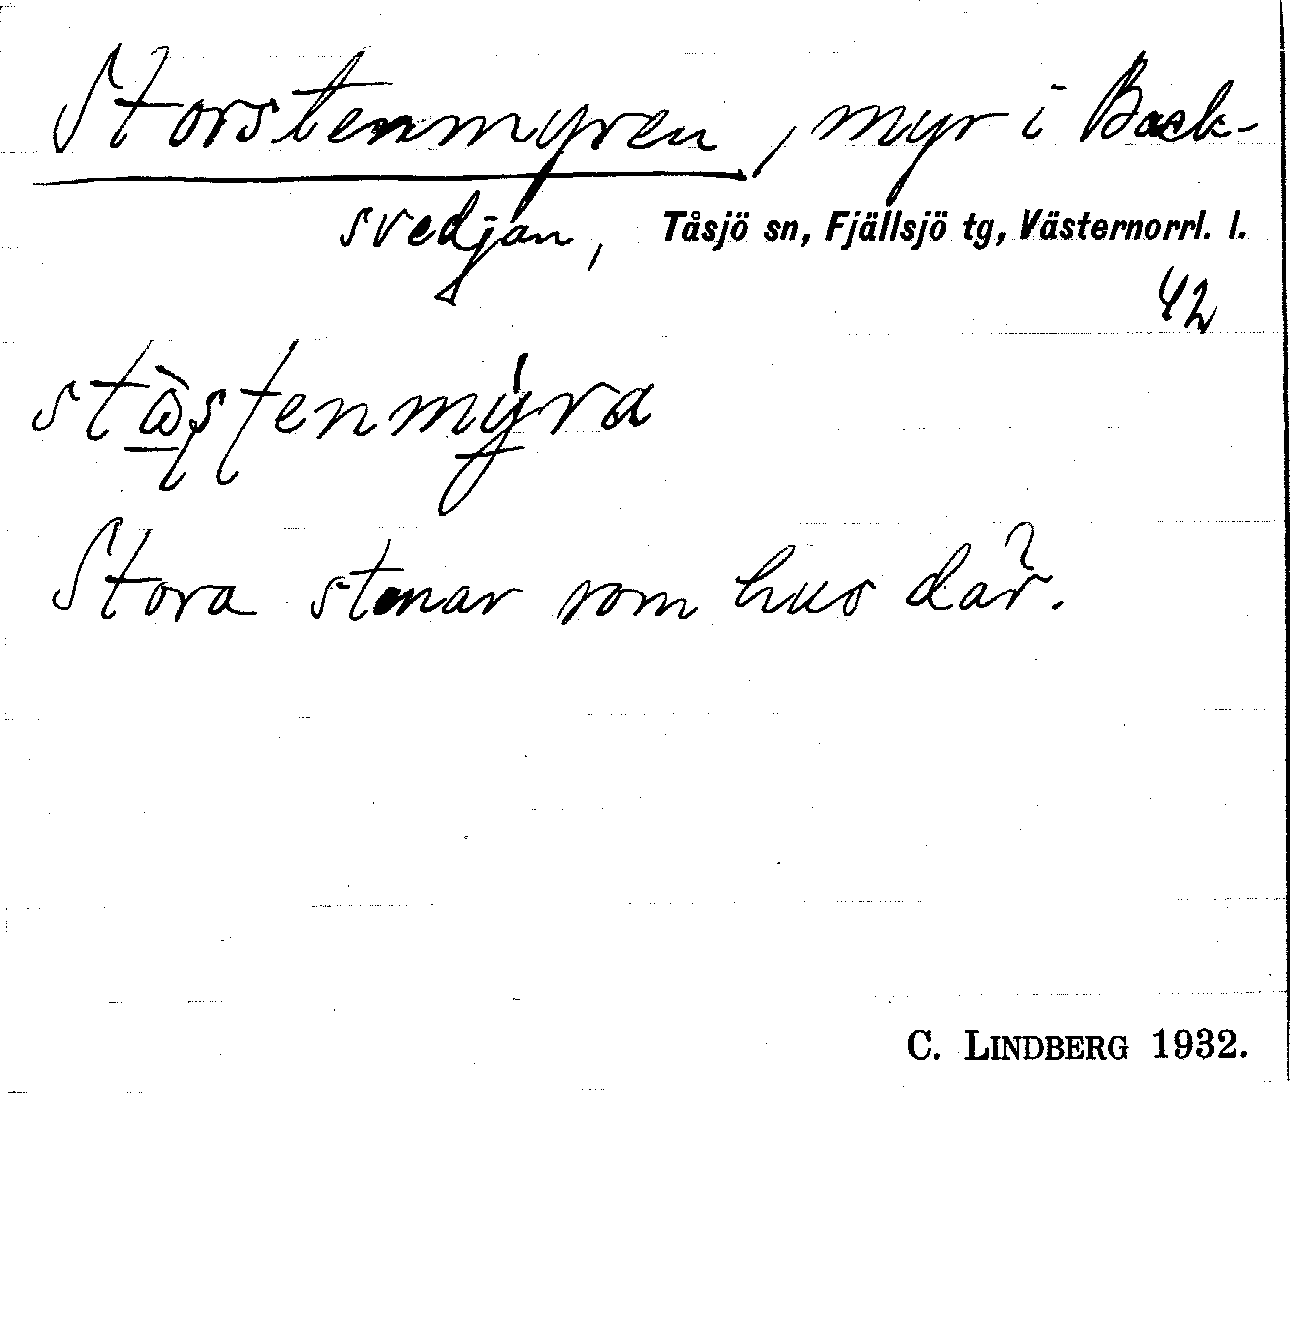 Storstenmyren, myr i Back-
svedjan, Tåsjö sn, Fjällsjö tg, Västernorrl. l.
42
Stora stenar som hus där.
C. LINDBERG 1932.